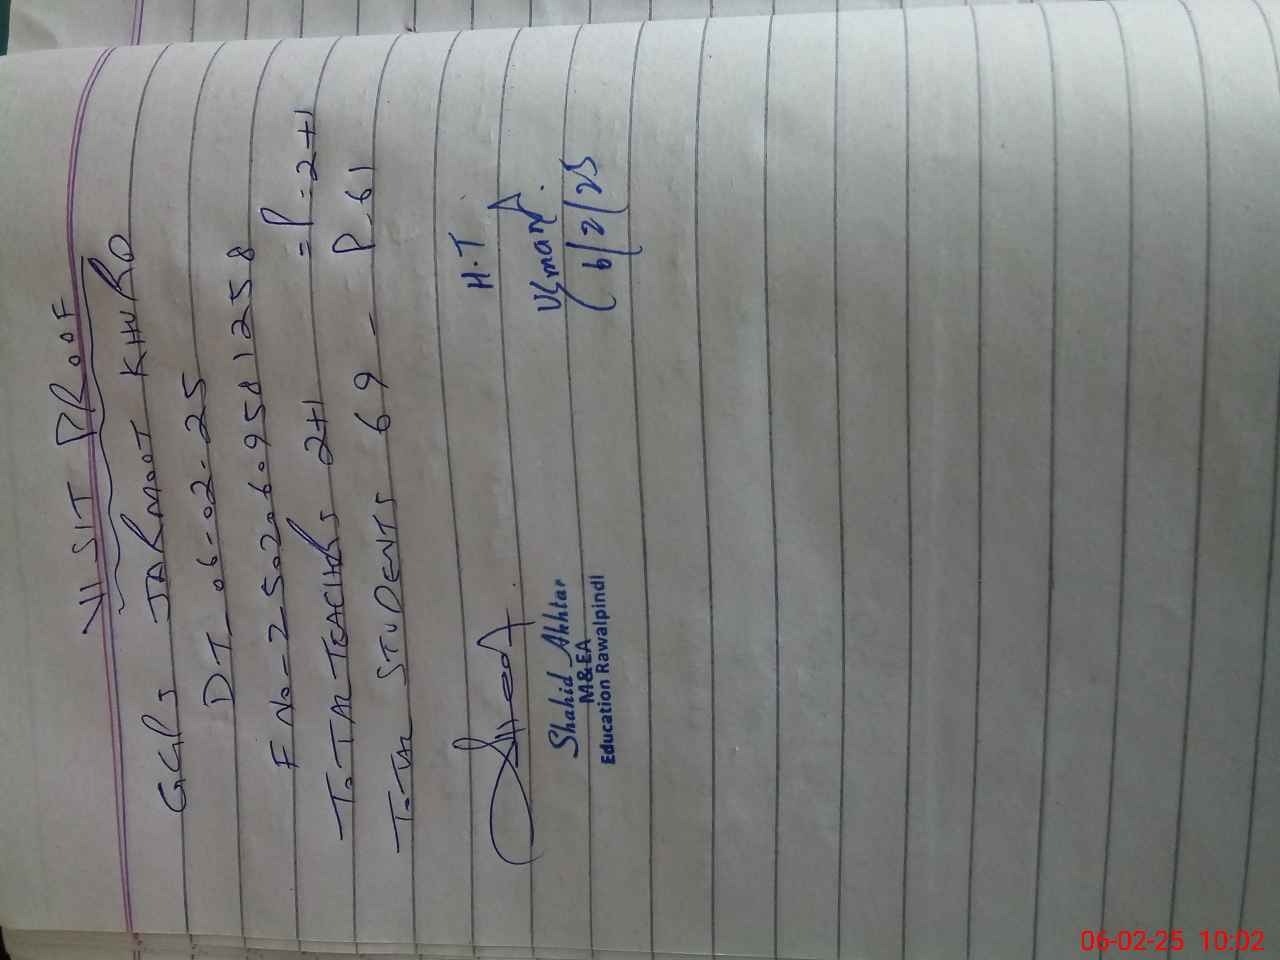 VISIT PROOF
GGPS JARMOOT KHURD
DT_06-02-25
F No-25020609581258
TOTAL TEACHRS 2+1 = P-2+1
TOTAL STUDENTS 69 - P-61
H.T
Usmand
6/2/25
Shahid Akhtar
M&EA
Education Rawalpindi
06-02-25 10:02